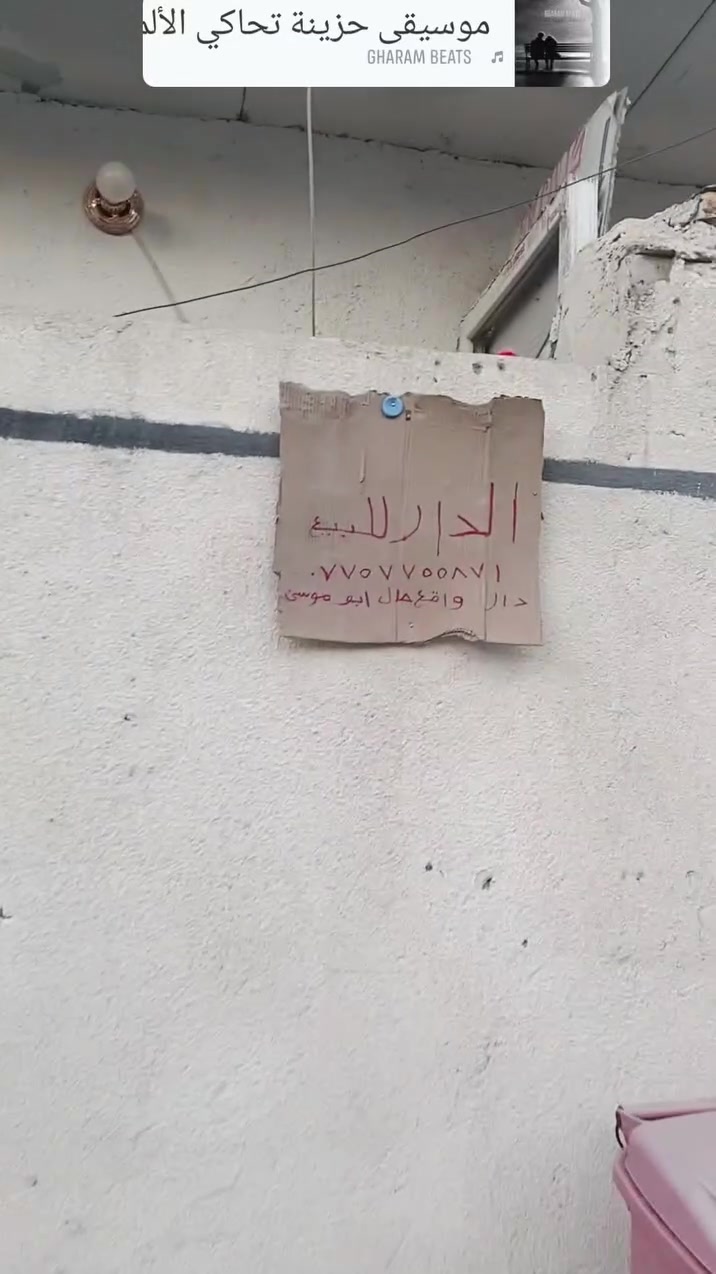 موسيقى حزينة تحاكي الألم
GHARAM BEATS
الدار للبيع
٠٧٧٥٧٧٥٥٨٧١
دار واقع مال ابو موسى